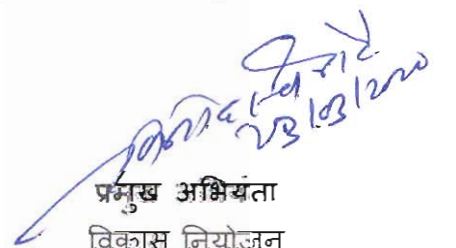 23/03/2020
प्रमुख अभियंता
विकास नियोजन